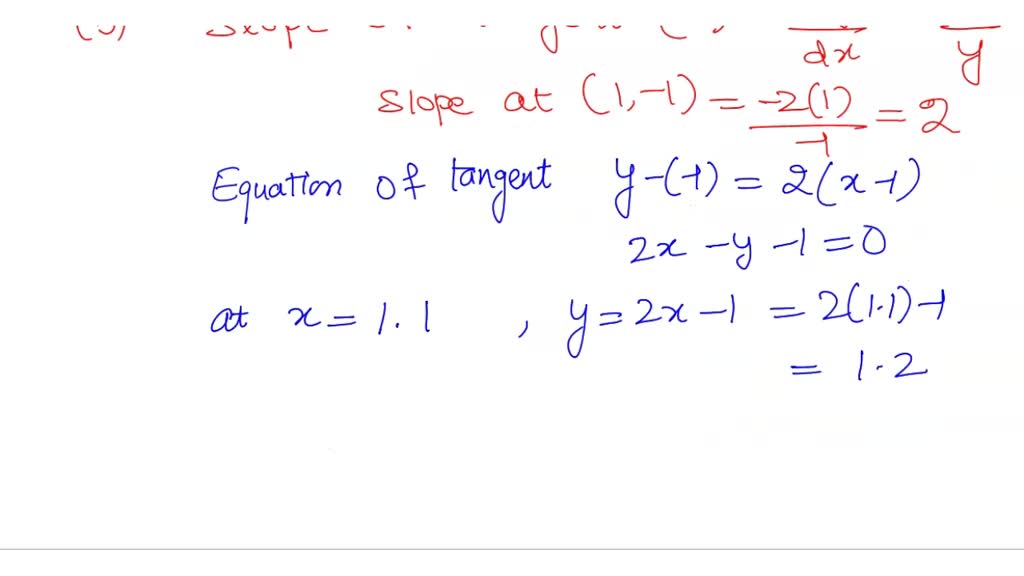 dx y
slope at (1,-1) = -2(1)/-1 = 2
Equation of tangent y-(-1) = 2(x-1)
2x-y-1=0
at x=1.1 , y=2x-1 = 2(1.1)-1
= 1.2